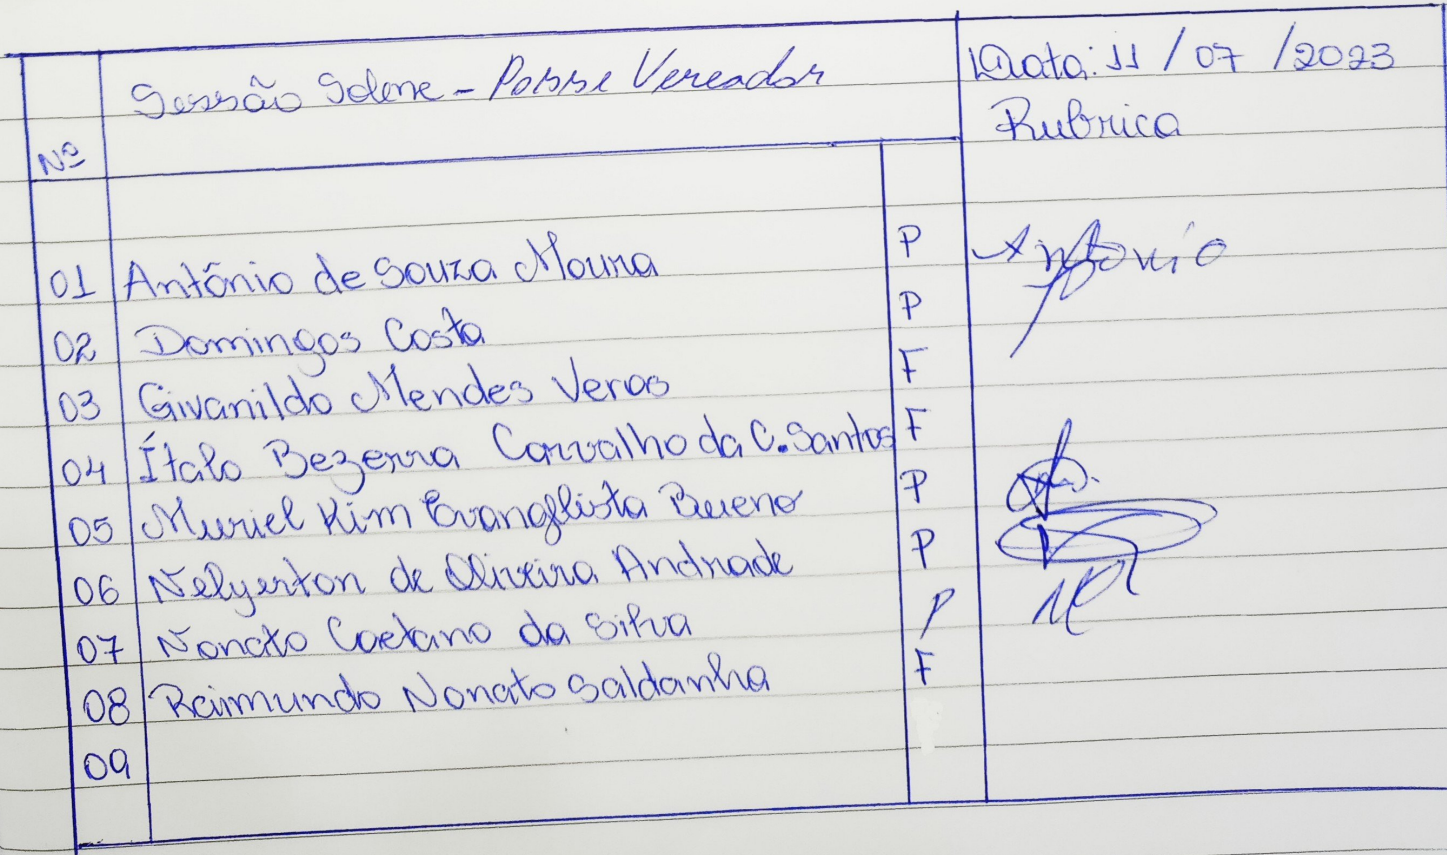 Sessão Solene - Posse Vereador
Data: 11 / 07 / 2023
Nº
Rubrica
01 Antônio de Souza Moura P Antonio
02 Domingos Costa P
03 Givanildo Mendes Veras F
04 Ítalo Bezerra Carvalho da C. Santos F
05 Muriel Kim Evangelista Bueno P
06 Nelyerton de Oliveira Andrade P
07 Nonato Caetano da Silva P
08 Raimundo Nonato Saldanha F
09